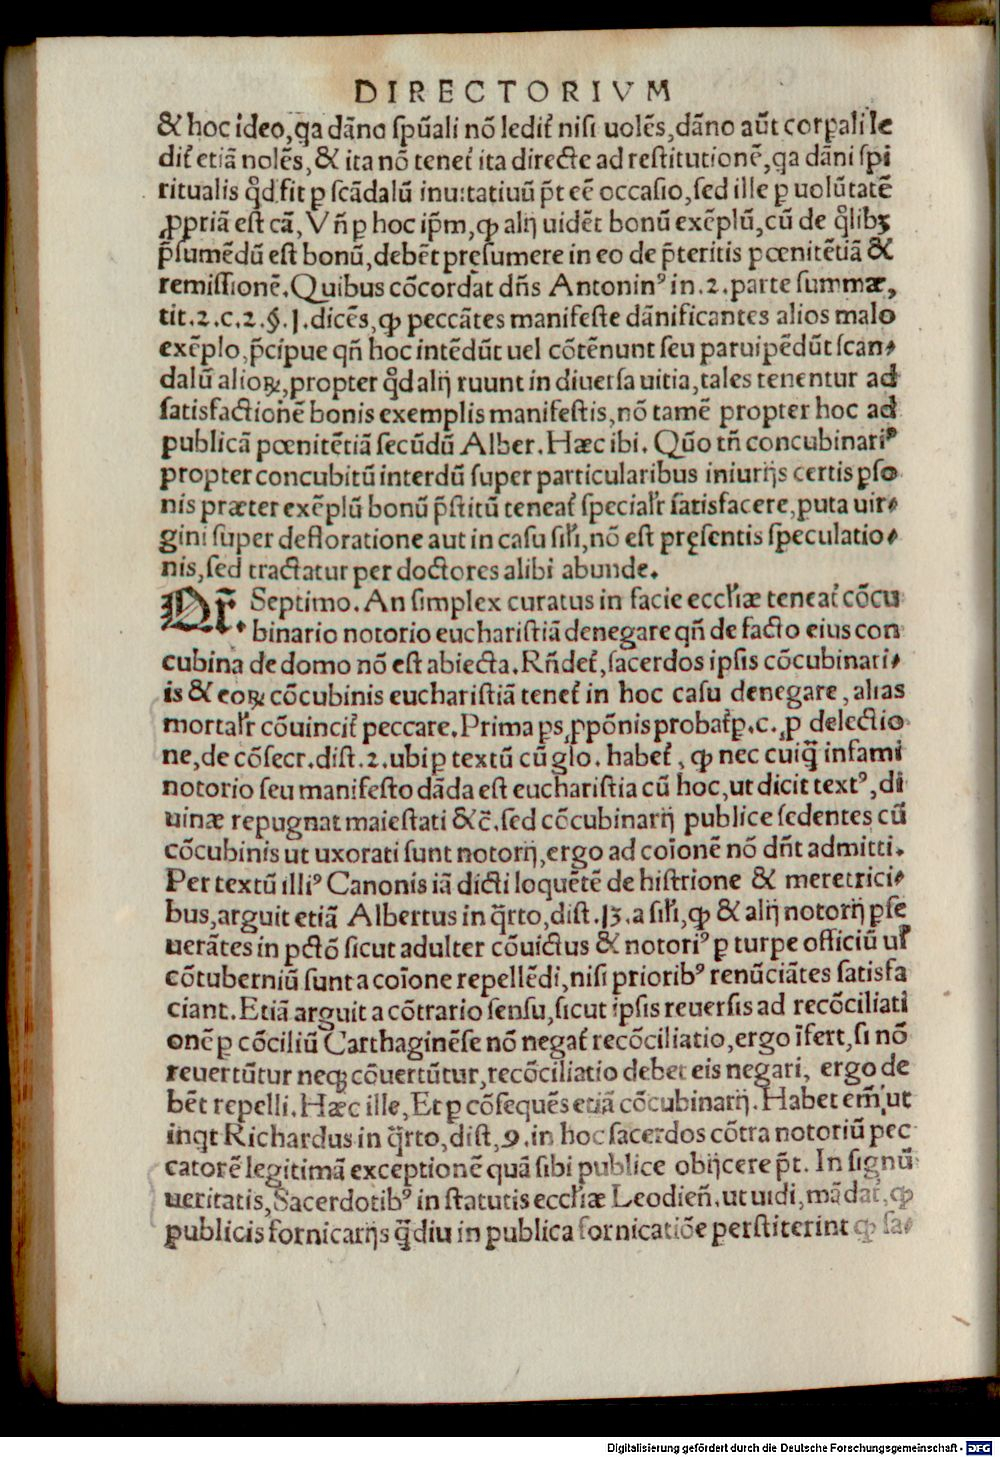 DIRECTORIVM
& hoc ideo, q̃a dãno sp̃uali nõ ledit᷑ nisi uolẽs, dãno aũt corꝑali le
dit᷑ etiã nolẽs, & ita nõ tenet᷑ ita directe ad restitutionẽ, q̃a dãni spi
ritualis q̃d fit ꝑ scãdalũ inuitatiuũ p̃t eẽ occasio, sed ille ꝑ uolũtatẽ
ꝓpriã est cã, Vñ ꝑ hoc ip̃m, ꝙ alij uidẽt bonũ exẽplũ, cũ de q̃libꝫ
p̃sumẽdũ est bonũ, debẽt pręsumere in eo de p̃teritis pœnitẽtiã &
remissionẽ. Quibus cõcordat dñs Antoninꝰ in .2. parte summæ,
tit.2.c.2.§.J. dicẽs, ꝙ peccãtes manifeste dãnificantes alios malo
exẽplo, p̃cipue qñ hoc intẽdũt uel cõtẽnunt seu paruipẽdũt scan⸗
dalũ alioꝝ, propter q̃d alij ruunt in diuersa uitia, tales tenentur ad
satisfactionẽ bonis exemplis manifestis, nõ tamẽ propter hoc ad
publicã pœnitẽtiã secũdũ Alber. Hæc ibi. Quõ tñ concubinariꝰ
propter concubitũ interdũ super particularibus iniurijs certis ꝑso
nis præter exẽplũ bonũ p̃stitũ teneat᷑ specialr̃ satisfacere, puta uir⸗
gini super defloratione aut in casu sil̃i, nõ est pręsentis speculatio⸗
nis, sed tractatur per doctores alibi abunde.
Qr̃. Septimo. An simplex curatus in facie eccl̃iæ teneat᷑ cõcu
binario notorio eucharistiã denegare qñ de facto eius con
cubina de domo nõ est abiecta. Rñdet᷑, sacerdos ipsis cõcubinari⸗
is & eoꝝ cõcubinis eucharistiã tenet᷑ in hoc casu denegare, alias
mortalr̃ cõuincit᷑ peccare. Prima ps ꝓpõnis probat᷑ ꝑ.c. ꝓ delectio
ne, de cõsecr. dist.2. ubi ꝑ textũ cũ glo. habet᷑, ꝙ nec cuiq̃ infami
notorio seu manifesto dãda est eucharistia cũ hoc, ut dicit textꝰ, di
uinæ repugnat maiestati &c̃. sed cõcubinarij publice sedentes cũ
cõcubinis ut uxorati sunt notorij, ergo ad coĩonẽ nõ dñt admitti.
Per textũ illiꝰ Canonis iã dicti loquẽtẽ de histrione & meretrici⸗
bus, arguit etiã Albertus in q̃rto, dist.J3. a sil̃i, ꝙ & alij notorij ꝑse
uerãtes in pctõ sicut adulter cõuictus & notoriꝰ ꝑ turpe officiũ ul̃
cõtuberniũ sunt a coĩone repellẽdi, nisi prioribꝰ renũciãtes satisfa
ciant. Etiã arguit a cõtrario sensu, sicut ipsis reuersis ad recõciliati
onẽ ꝑ cõciliũ Carthaginẽse nõ negat᷑ recõciliatio, ergo ĩfert, si nõ
reuertũtur neqꝫ cõuertũtur, recõciliatio debet eis negari, ergo de
bẽt repelli. Hæc ille, Et ꝑ cõsequẽs etiã cõcubinarij. Habet em̃, ut
inq̃t Richardus in q̃rto, dist, 9. in hoc sacerdos cõtra notoriũ pec
catorẽ legitimã exceptionẽ quã sibi publice obijcere p̃t. In signũ
ueritatis, Sacerdotibꝰ in statutis eccl̃iæ Leodieñ. ut uidi, mãdat᷑, ꝙ
publicis fornicarijs q̃diu in publica fornicatiõe perstiterint ꝙ sa⸗
Digitalisierung gefördert durch die Deutsche Forschungsgemeinschaft - DFG